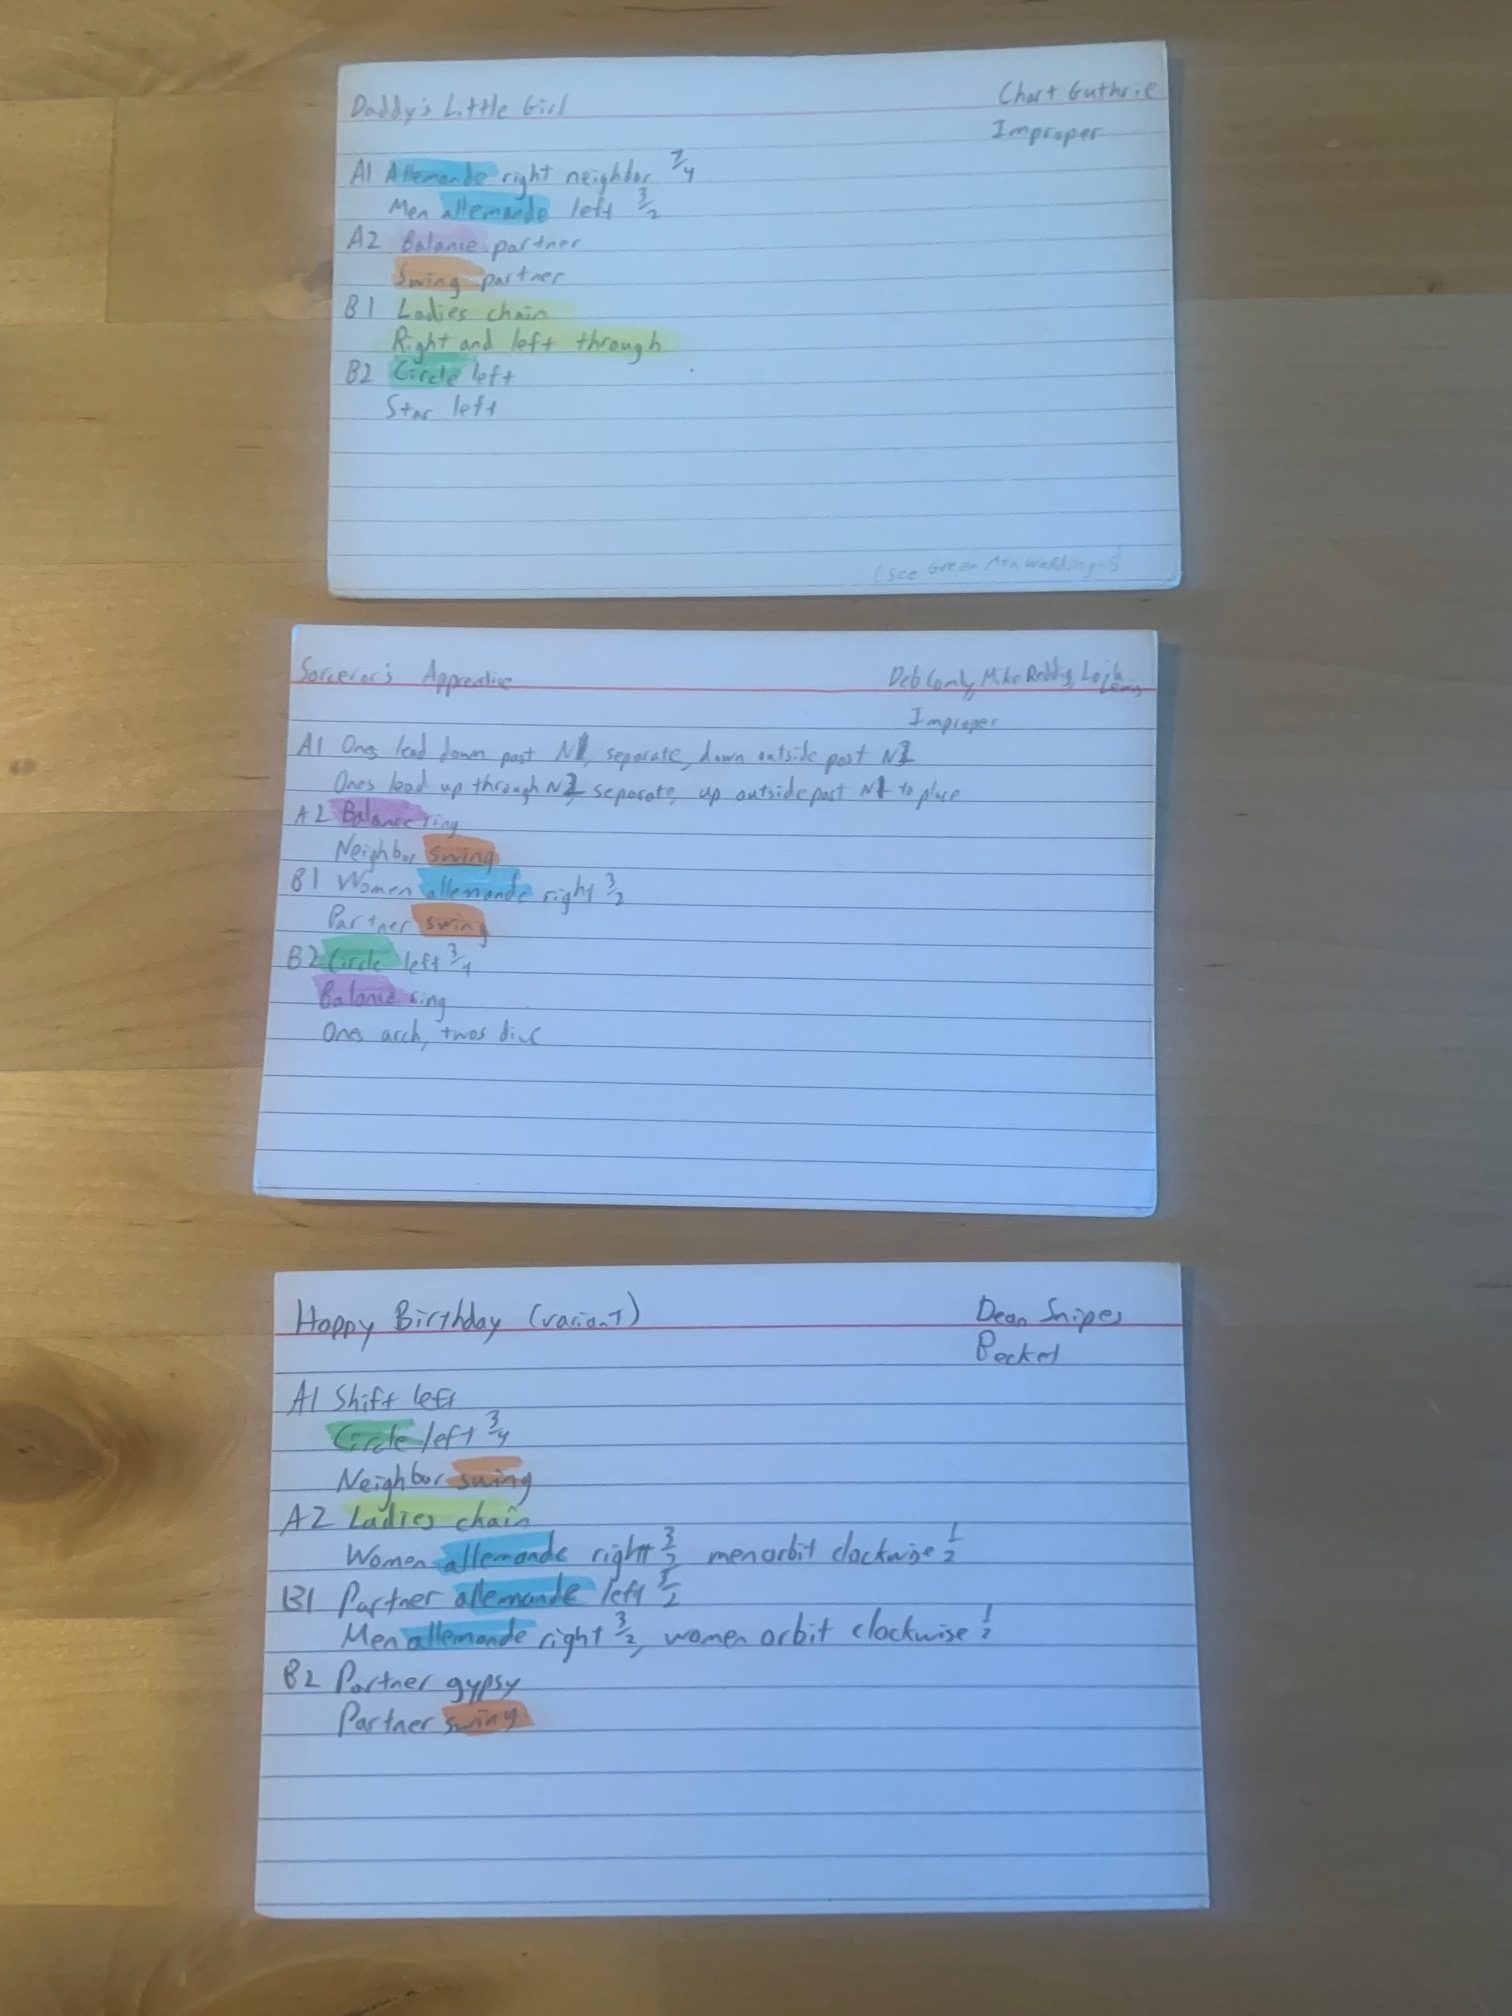 Daddy's Little Girl
Chart Guthrie
Improper
A1 Allemande right neighbor 7/4
Men allemande left 3/2
A2 Balance partner
Swing partner
B1 Ladies chain
Right and left through
B2 Circle left
Star left
(see Green Mtn Wedding
Sorceror's Apprentice
Deb Comly, Mike Reddy,
Improper
A1 Ones lead down past N1, separate, down outside past N2
Ones lead up through N2, separate, up outside past N1 to place
A2 Balance ring
Neighbor swing
B1 Women allemande right 3/2
Partner swing
B2 Circle left 3/4
Balance ring
Ones arch, twos dive
Happy Birthday (variant)
Dean Snipes
Becket
A1 Shift left
Circle left 3/4
Neighbor swing
A2 Ladies chain
Women allemande right 3/2 men orbit clockwise 1/2
B1 Partner allemande left 3/2
Men allemande right 3/2, women orbit clockwise 1/2
B2 Partner gypsy
Partner swing